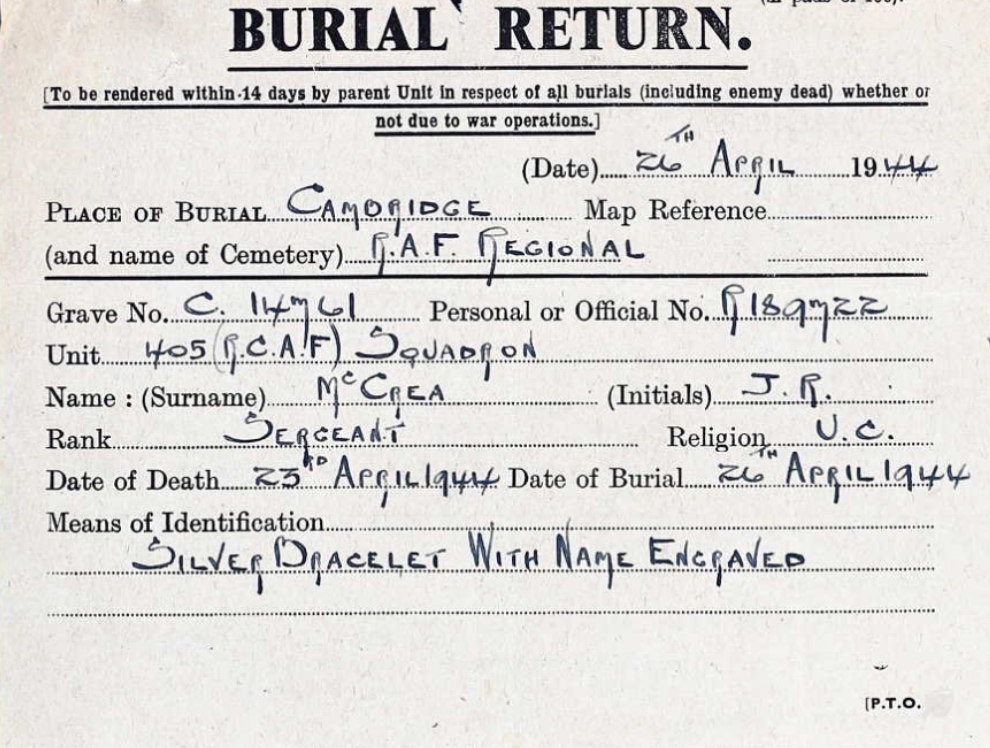 BURIAL RETURN.
[To be rendered within 14 days by parent Unit in respect of all burials (including enemy dead) whether or
not due to war operations.]
(Date) 26TH APRIL 1944
PLACE OF BURIAL CAMBRIDGE Map Reference
(and name of Cemetery) R.A.F. REGIONAL
Grave No. C. 14761 Personal or Official No. R189722
Unit 405 (R.C.A.F) SQUADRON
Name : (Surname) McCREA (Initials) J.R.
Rank SERGEANT Religion U.C.
Date of Death 23RD APRIL 1944 Date of Burial 26TH APRIL 1944
Means of Identification
SILVER BRACELET WITH NAME ENGRAVED
[P.T.O.